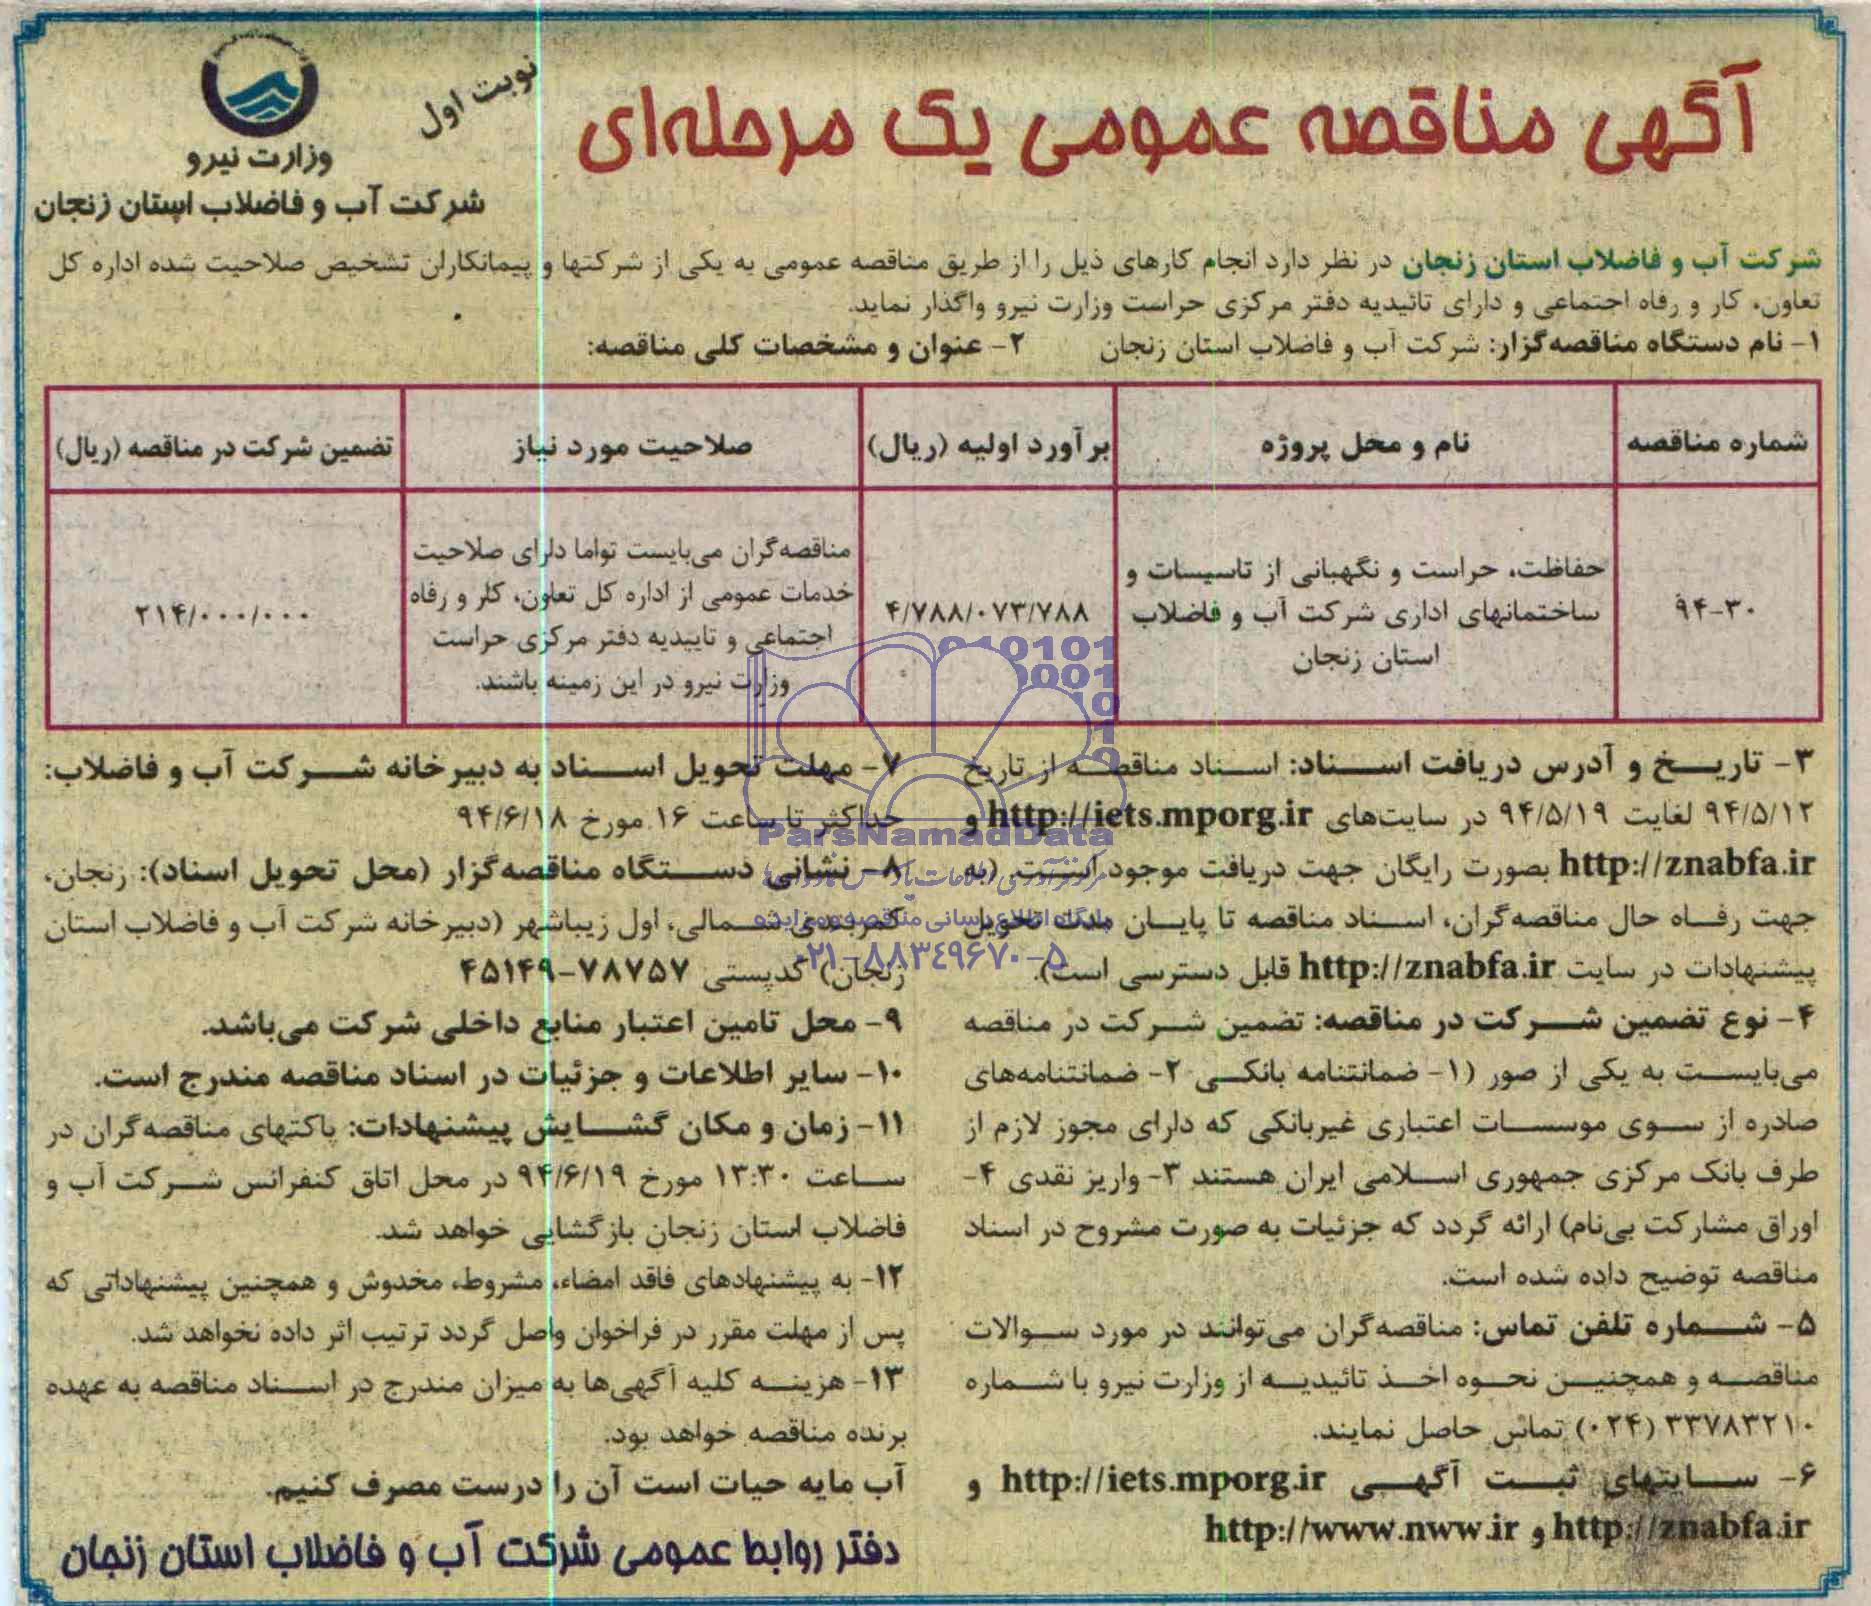 آگهی مناقصه عمومی یک مرحله‌ای
نوبت اول
وزارت نیرو
شرکت آب و فاضلاب استان زنجان
شرکت آب و فاضلاب استان زنجان در نظر دارد انجام کارهای ذیل را از طریق مناقصه عمومی به یکی از شرکتها و پیمانکاران تشخیص صلاحیت شده اداره کل
تعاون، کار و رفاه اجتماعی و دارای تائیدیه دفتر مرکزی حراست وزارت نیرو واگذار نماید.
۱- نام دستگاه مناقصه‌گزار: شرکت آب و فاضلاب استان زنجان ۲- عنوان و مشخصات کلی مناقصه:
شماره مناقصه نام و محل پروژه برآورد اولیه (ریال) صلاحیت مورد نیاز تضمین شرکت در مناقصه (ریال)
۹۴-۳۰
حفاظت، حراست و نگهبانی از تاسیسات و
ساختمانهای اداری شرکت آب و فاضلاب
استان زنجان
۴/۷۸۸/۰۷۳/۷۸۸
مناقصه‌گران می‌بایست تواما دارای صلاحیت
خدمات عمومی از اداره کل تعاون، کار و رفاه
اجتماعی و تاییدیه دفتر مرکزی حراست
وزارت نیرو در این زمینه باشند.
۲۱۴/۰۰۰/۰۰۰
۳- تاریخ و آدرس دریافت اسناد: اسناد مناقصه از تاریخ
۹۴/۵/۱۲ لغایت ۹۴/۵/۱۹ در سایت‌های http://iets.mporg.ir و
http://znabfa.ir بصورت رایگان جهت دریافت موجود است. (به
جهت رفاه حال مناقصه‌گران، اسناد مناقصه تا پایان مدت تحویل
پیشنهادات در سایت http://znabfa.ir قابل دسترسی است).
۴- نوع تضمین شرکت در مناقصه: تضمین شرکت در مناقصه
می‌بایست به یکی از صور (۱- ضمانتنامه بانکی ۲- ضمانتنامه‌های
صادره از سوی موسسات اعتباری غیربانکی که دارای مجوز لازم از
طرف بانک مرکزی جمهوری اسلامی ایران هستند ۳- واریز نقدی ۴-
اوراق مشارکت بی‌نام) ارائه گردد که جزئیات به صورت مشروح در اسناد
مناقصه توضیح داده شده است.
۵- شماره تلفن تماس: مناقصه‌گران می‌توانند در مورد سوالات
مناقصه و همچنین نحوه اخذ تائیدیه از وزارت نیرو با شماره
۳۳۷۸۳۲۱۰ (۰۲۴) تماس حاصل نمایند.
۶- سایتهای ثبت آگهی http://iets.mporg.ir و
http://znabfa.ir و http://www.nww.ir
۷- مهلت تحویل اسناد به دبیرخانه شرکت آب و فاضلاب:
حداکثر تا ساعت ۱۶ مورخ ۹۴/۶/۱۸
۸- نشانی دستگاه مناقصه‌گزار (محل تحویل اسناد): زنجان،
کمربندی شمالی، اول زیباشهر (دبیرخانه شرکت آب و فاضلاب استان
زنجان) کدپستی ۷۸۷۵۷-۴۵۱۴۹
۹- محل تامین اعتبار منابع داخلی شرکت می‌باشد.
۱۰- سایر اطلاعات و جزئیات در اسناد مناقصه مندرج است.
۱۱- زمان و مکان گشایش پیشنهادات: پاکتهای مناقصه‌گران در
ساعت ۱۳:۳۰ مورخ ۹۴/۶/۱۹ در محل اتاق کنفرانس شرکت آب و
فاضلاب استان زنجان بازگشایی خواهد شد.
۱۲- به پیشنهادهای فاقد امضاء، مشروط، مخدوش و همچنین پیشنهاداتی که
پس از مهلت مقرر در فراخوان واصل گردد ترتیب اثر داده نخواهد شد.
۱۳- هزینه کلیه آگهی‌ها به میزان مندرج در اسناد مناقصه به عهده
برنده مناقصه خواهد بود.
آب مایه حیات است آن را درست مصرف کنیم.
دفتر روابط عمومی شرکت آب و فاضلاب استان زنجان
ParsNamadData
پایگاه اطلاع رسانی مناقصه و مزایده
۰۲۱-۸۸۳٤۹۶۷۰-۵